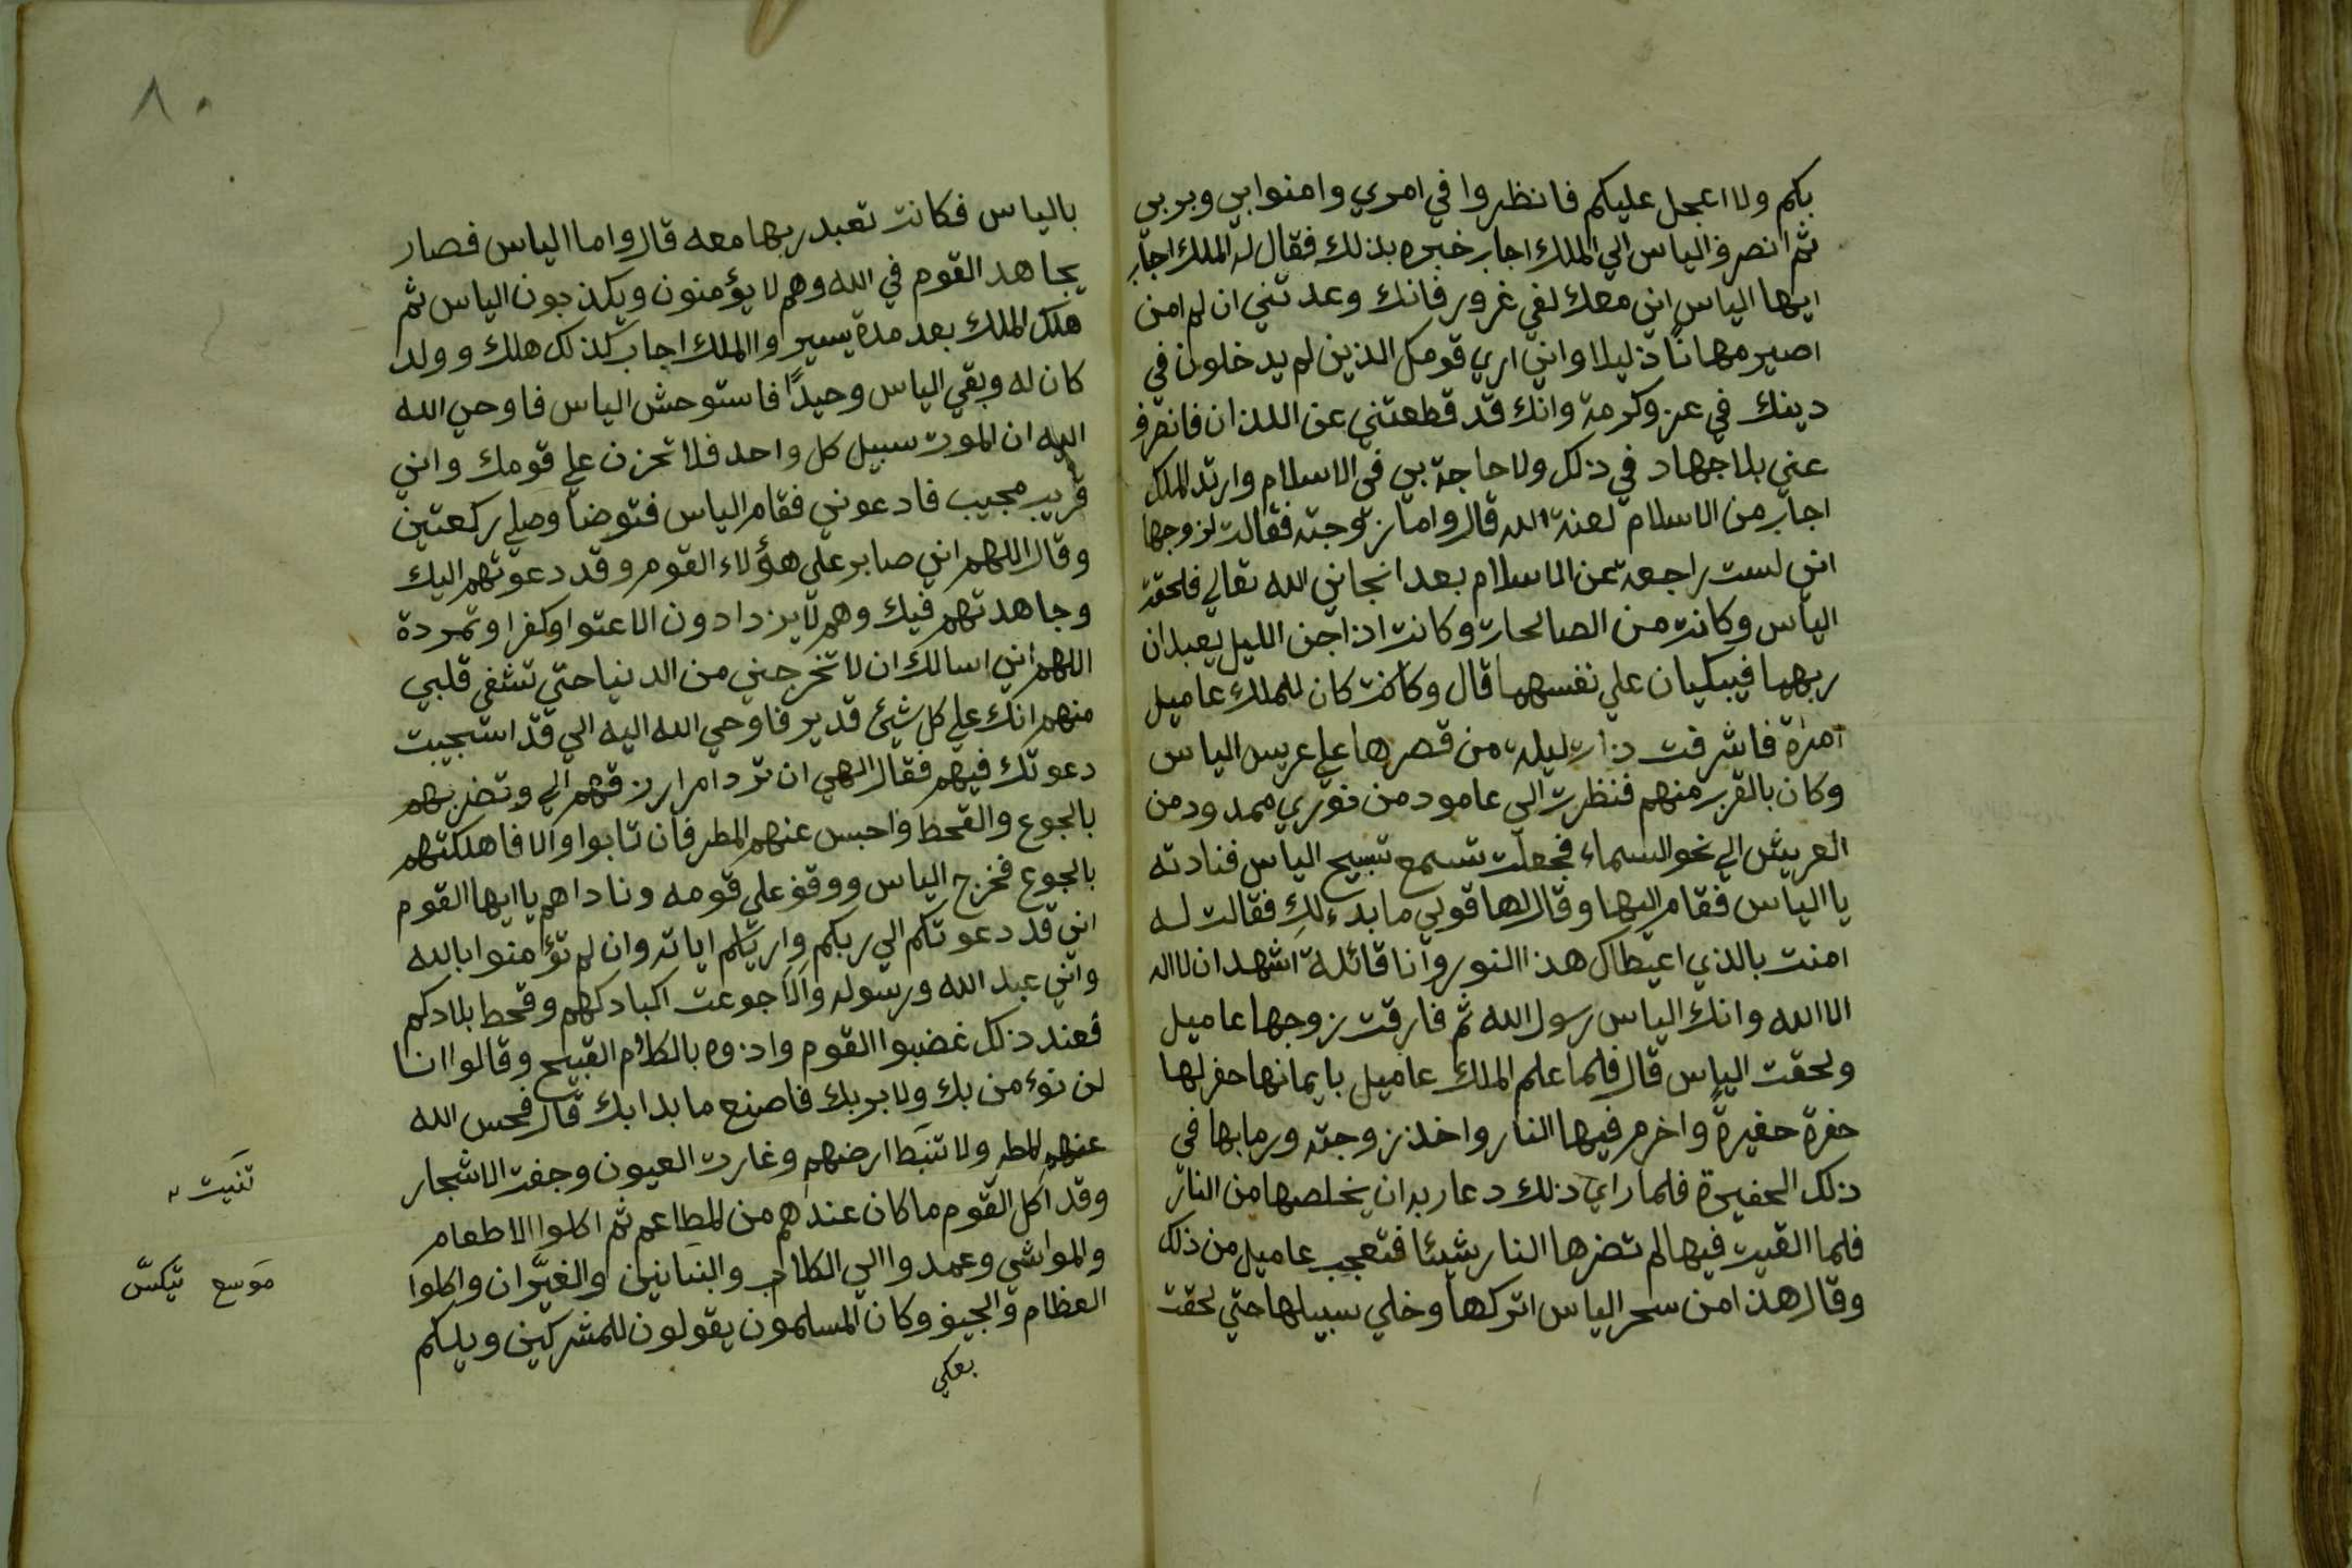 بكم ولا اعجل عليكم فانظروا في امري وامنوا بي وبربي
ثم انصرف الياس الي الملك اجاب خبره بذلك فقال له الملك اجاب
ايها الياس اني معك لفي غرور فانك وعدتني ان لم امن
اصير مهاناً ذليلا واني اري قومك الذين لم يدخلون في
دينك في عز وكرمة وانك قد قطعتني عن اللذان فانصرف
عني بلا جهاد في ذلك ولا حاجة بي في الاسلام وارتد الملك
اجاب من الاسلام لعنة الله قالوا اما زوجته فقالت لزوجها
اني لست راجعة عن الاسلام بعد انجاني الله تعالي فلحقة
الياس وكانت من الصالحات وكانت اذا جن الليل يعبدان
ربهما فيبكيان علي نفسهما قال وكانت كان للملك عاميل
امرأة فاشرفت ذات ليلة من قصرها علي عريس الياس
وكان بالقرب منهم فنظرت الي عامود من نوري ممدود من
العريش الي نحو السماء فجعلت تسمع تسبيح الياس فنادته
يا الياس فقام اليها وقال لها قولي ما بدء لك فقالت له
امنت بالذي اعيطاك هذا النور وانا قائلة اشهد ان لا اله
الا الله وانك الياس رسول الله ثم فارقت زوجها عاميل
ولحقت الياس قال فلما علم الملك عاميل بايمانها حفر لها
حفرة حفيرة واخرم فيها النار واخذ زوجته ورما بها في
ذلك الحفيرة فلما راي ذلك دعا ربه ان يخلصها من النار
فلما القيت فيها لم تضرها النار شيئا فتعجب عاميل من ذلك
وقال هذا من سحر الياس اتركها وخلي سبيلها حتي لحقت
٨٠
بالياس فكانت تعبد ربها معه قالوا اما الياس فصار
يجاهد القوم في الله وهم لا يؤمنون ويكذبون الياس ثم
هلك الملك بعد مدة يسير واالملك اجاب كذلك هلك وولد
كان له وبقي الياس وحيدًا فاستوحش الياس فاوحي الله
اليه ان الموت سبيل كل واحد فلا تحزن علي قومك واني
قريب مجيب فادعوني فقام الياس فتوضأ وصلي ركعتين
وقال اللهم اني صابر علي هؤلاء القوم وقد دعوتهم اليك
وجاهدتهم فيك وهم لا يزدادون الا عتوا وكفرا وتمردة
اللهم اني اسالك ان لا تخرجني من الدنيا حتي تشفي قلبي
منهم انك علي كل شيئ قدير فاوحي الله اليه الي قد استجيبت
دعوتك فيهم فقال الهي ان ترد امر ارزقهم الي وتضربهم
بالجوع والقحط واحبس عنهم المطر فان تابوا والا فاهلكتهم
بالجوع فخرج الياس ووقف علي قومه وناداهم يا ايها القوم
اني قد دعوتكم الي ربكم واريتكم اياته وان لم تؤمنوا بالله
واني عبد الله ورسوله والا جوعت اكبادكهم وقحط بلادكم
فعند ذلك غضبوا القوم واذوه بالكلام القبيح وقالوا انا
لن نوءمن بك ولا بربك فاصنع ما بدا بك قال فحبس الله
عنهم المطر ولا تنبط ارضهم وغارت العيون وجفت الاشجار
وقد اكل القوم ما كان عندهم من المطاعم ثم اكلوا الاطعام
والمواشي وعمدوا الي الكلاب والبنانين والغيّران واكلوا
العظام والجيف وكان المسلمون يقولون للمشركين ويلكم